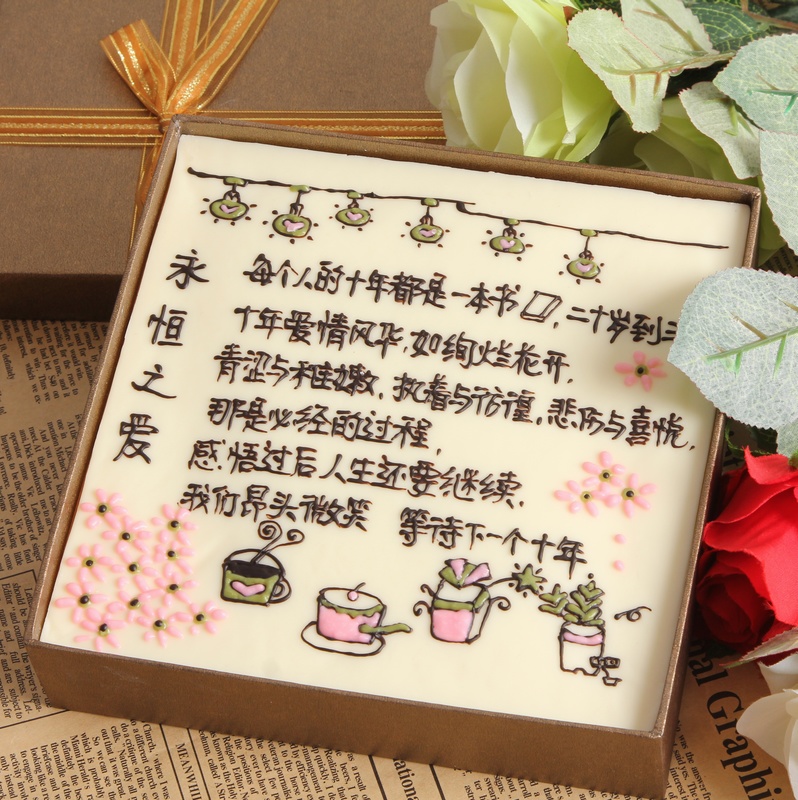 永恒之爱
每个人的十年都是一本书,二十岁到三
十年爱情风华,如绚烂花开,
青涩与稚嫩,执着与彷徨,悲伤与喜悦,
那是必经的过程,
感悟过后人生还要继续,
我们昂头微笑 等待下一个十年